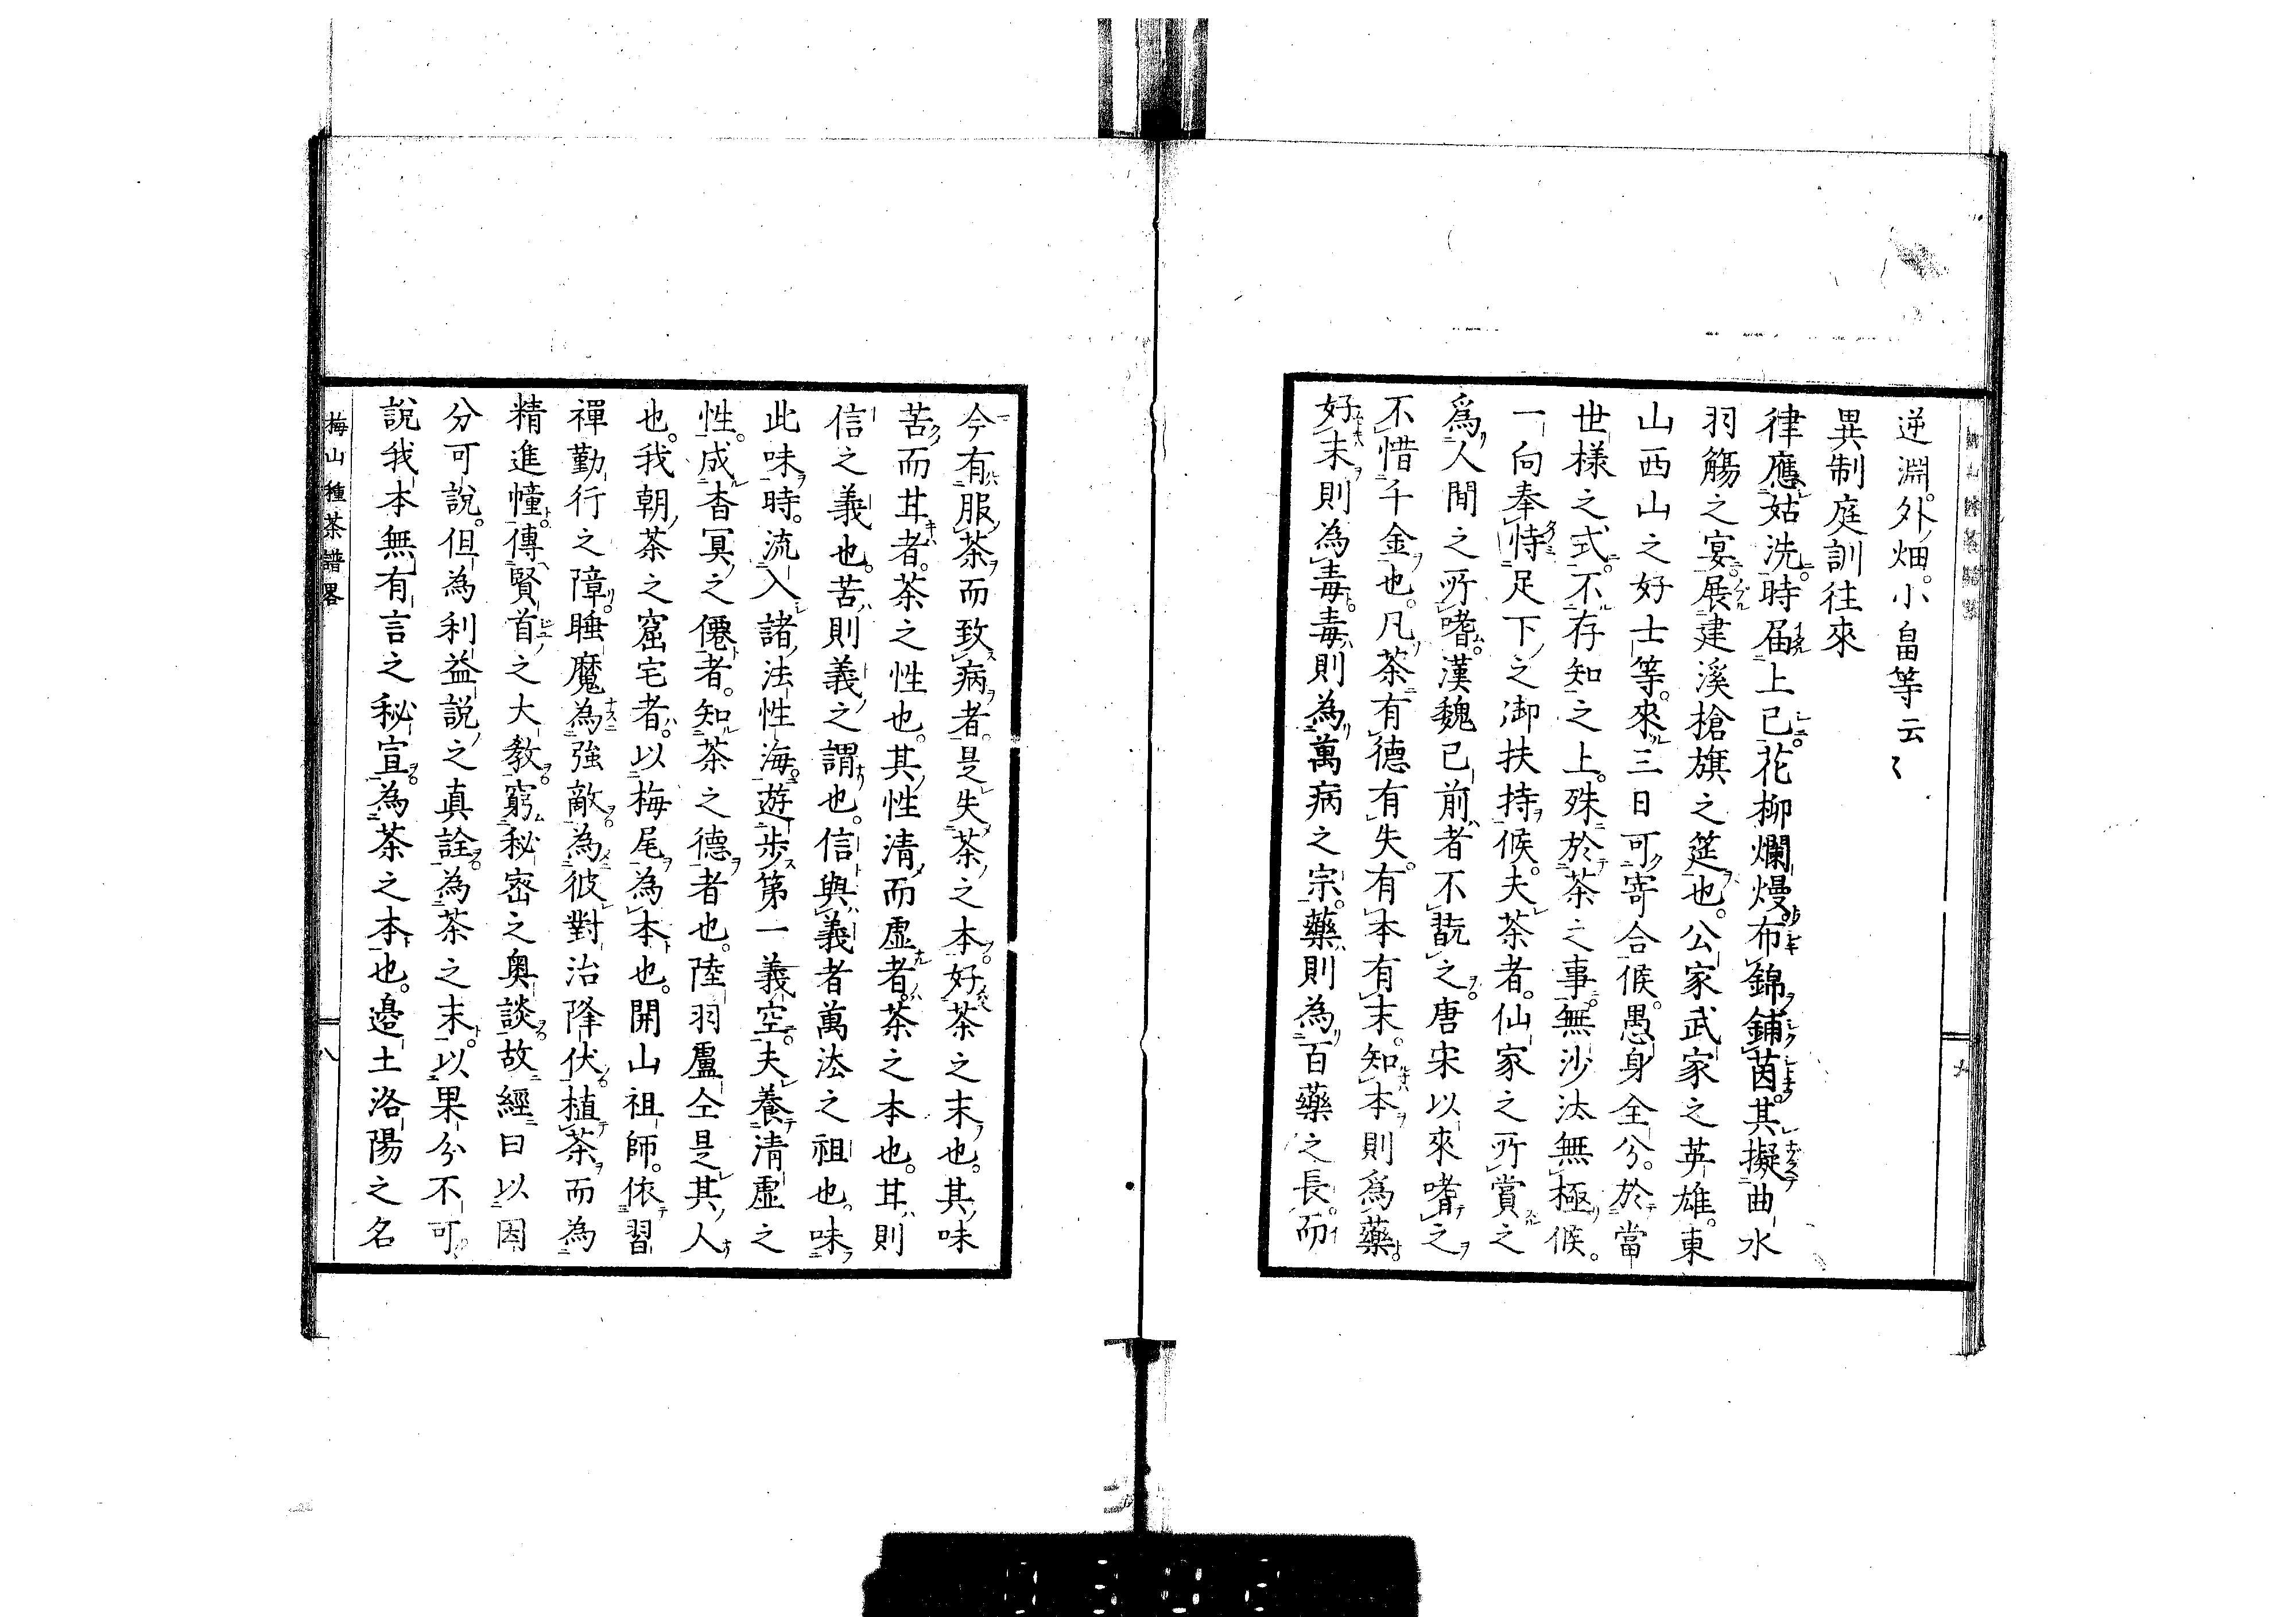 逆淵。外畑。小畠等云〻
異制庭訓往來
律應姑洗。時届上巳。花柳爛熳。布錦鋪茵。其擬曲水
羽觴之宴。展建溪槍旗之筵也。公家武家之英雄。東
山西山之好士等。來三日可寄合候。愚身全分。於當
世様之式。不存知之上。殊於茶之事。無沙汰無極候。
一向奉恃足下之御扶持候。夫茶者。仙家之所賞之
爲人間之所嗜。漢魏已前者不翫之。唐宋以來嗜之
不惜千金也。凡茶有德有失。有本有末。知本則爲藥。
好末則為毒。毒則為萬病之宗。藥則為百藥之長。而
今有服茶而致病者。是失茶之本。好茶之末也。其味
苦而甘者。茶之性也。其性清而虛者。茶之本也。甘則
信之義也。苦則義之謂也。信與義者萬法之祖也。味
此味時。流入諸法性海。遊歩第一義空。夫養清虛之
性。成杳冥之僊者。知茶之德者也。陸羽盧仝是其人
也。我朝茶之窟宅者。以梅尾為本也。開山祖師。依習
禪勤行之障。睡魔為強敵。為彼對治降伏。植茶而為
精進幢。傳賢首之大教。窮秘密之奥談。故經曰以因
分可說。但為利益說之真詮。為茶之末。以果分不可
說我本無有言之秘宣。為茶之本也。邉土洛陽之名
梅山種茶譜畧
八